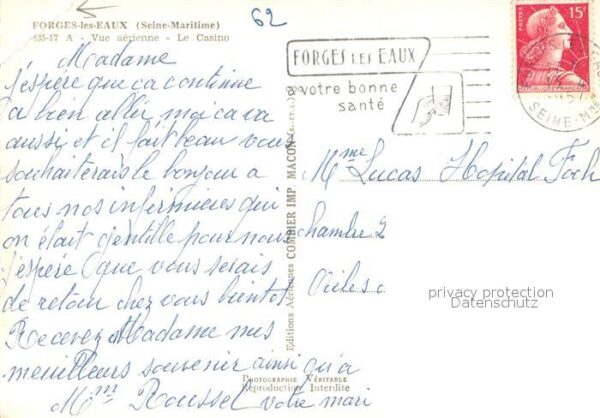 FORGES-les-EAUX (Seine-Maritime)
435-17 A - Vue aérienne - Le Casino
62
Madame
j'espère que ca continue
a bien aller moi ca va
aussi et il fait beau vous
souhaiterais le bonjour a
tous nos infirmieres qui
on était gentille pour nous
j'espére que vous serais
de retour chez vous bientot
Recevez Madame mes
meuilleurs souvenir ainsi qu'a
votre mari
Mme Roussel
FORGES LES EAUX
votre bonne
santé
15F
POSTES
REPUBLIQUE FRANÇAISE
SEINE-Mme
Editions Aériennes COMBIER IMP MACON
Mme Lucas Hopital Foch
chambre 2
privacy protection
Datenschutz
PHOTOGRAPHIE VÉRITABLE
Réproduction Interdite